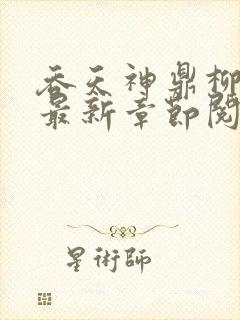 吞天神鼎柳
最新章節閱
星術師